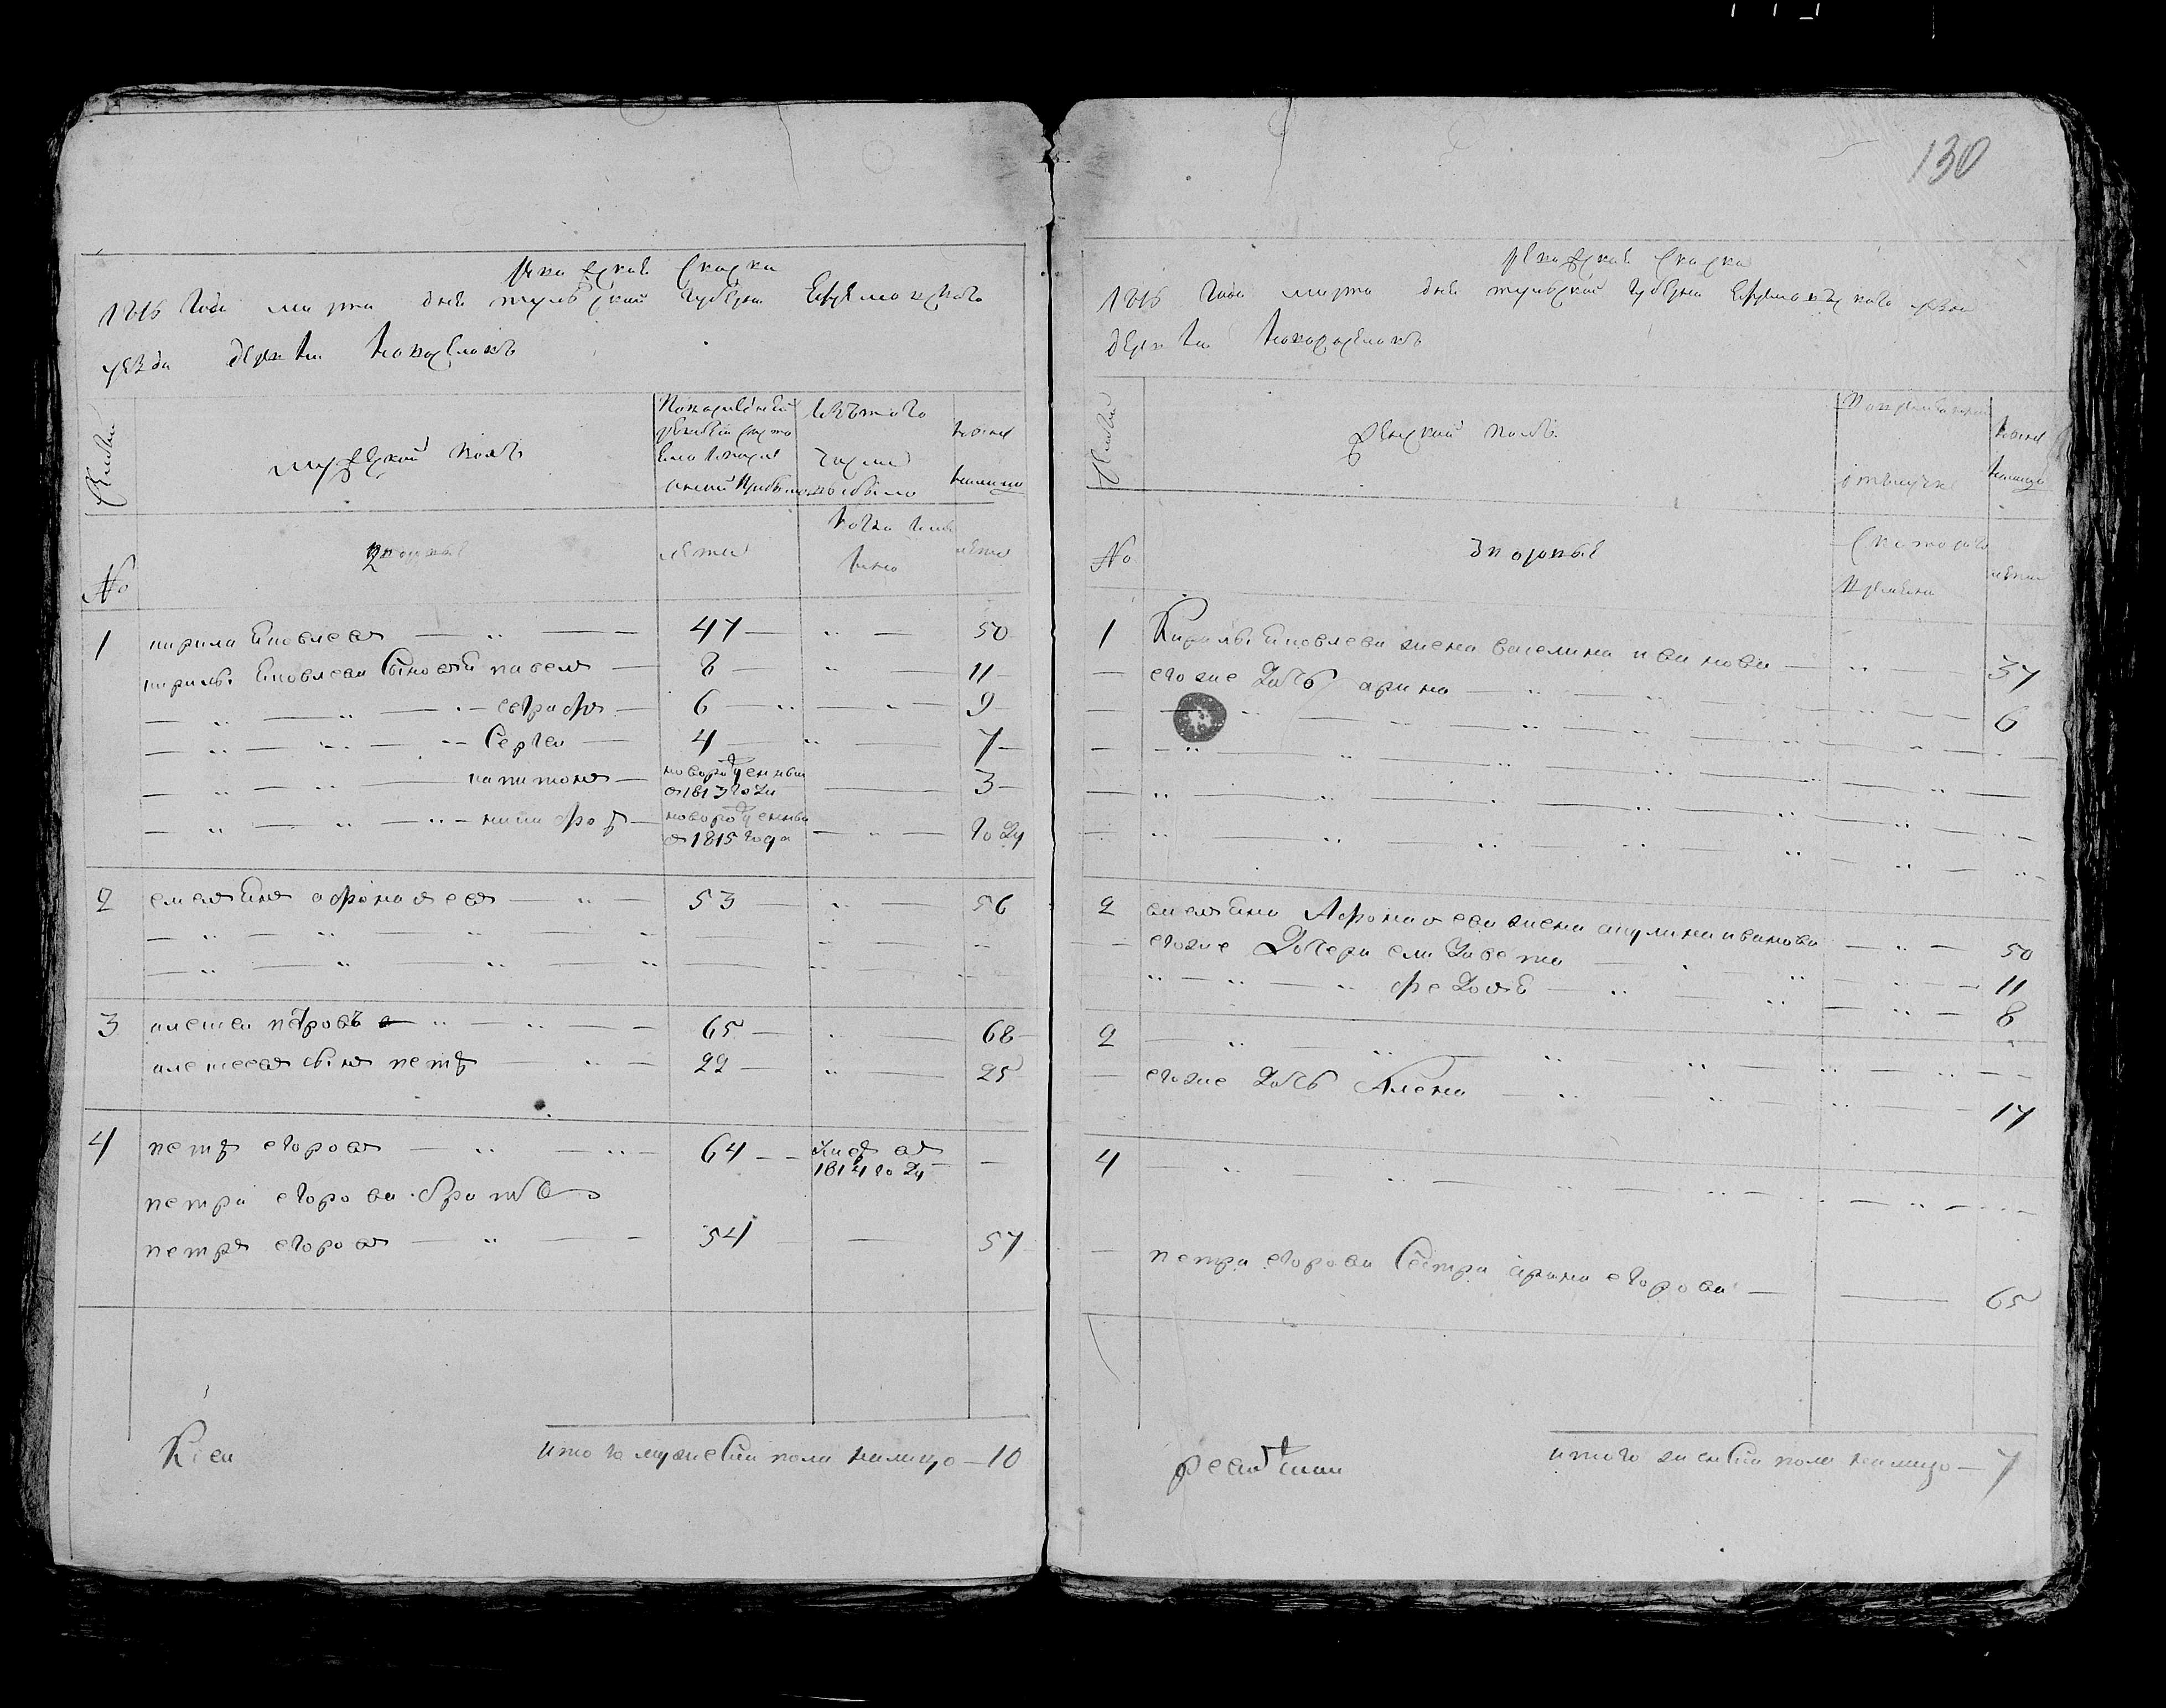 130
Ревижская сказка
1816 года марта дня тульской губерни Ефремовского
уезда деревни Новоселокъ
Семьи
мужеский полъ
По последней ревизии состояло и после оной прибыло
Изъ того числа выбыло
ныне налицо
№
дворовые
лета
когда имянно
лета
1 кирила Яковлевъ 47 50
кирилы Яковлева Сыновья павелъ 8 11
евграфъ 6 9
Сергеи 4 7
капитонъ новорожденный въ 1813 году 3
никифоръ новорожденный въ 1815 года году
2 емельянъ афонасьевъ 53 56
3 алексеи петровъ 65 68
алексеевъ сынъ петръ 22 25
4 петръ егоровъ 64 умре въ 1814 году
петра егорова братья
петръ егоровъ 54 57
Итого мужеска пола налицо 10
К сеи
Ревижская сказка
1816 года марта дня тульской губерни Ефремовского уезда
деревни Новоселокъ
Семьи
женский полъ
Во временной отлучке
ныне налицо
№
дворовые
С которого времени
лета
1 Кирилы Яковлева жена василиса иванова 37
его же Дочь арина 6
2 емельяна Афонасьева жена акулина иванова 50
его же Дочери елизавета 11
федосья 8
2
его же Дочь Алена 17
4
петра егорова Сестра арина егорова 65
итого женска пола налицо 7
ревизской